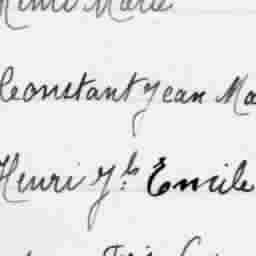 Marie
Constant Jean Ma
Henri Jh Emile